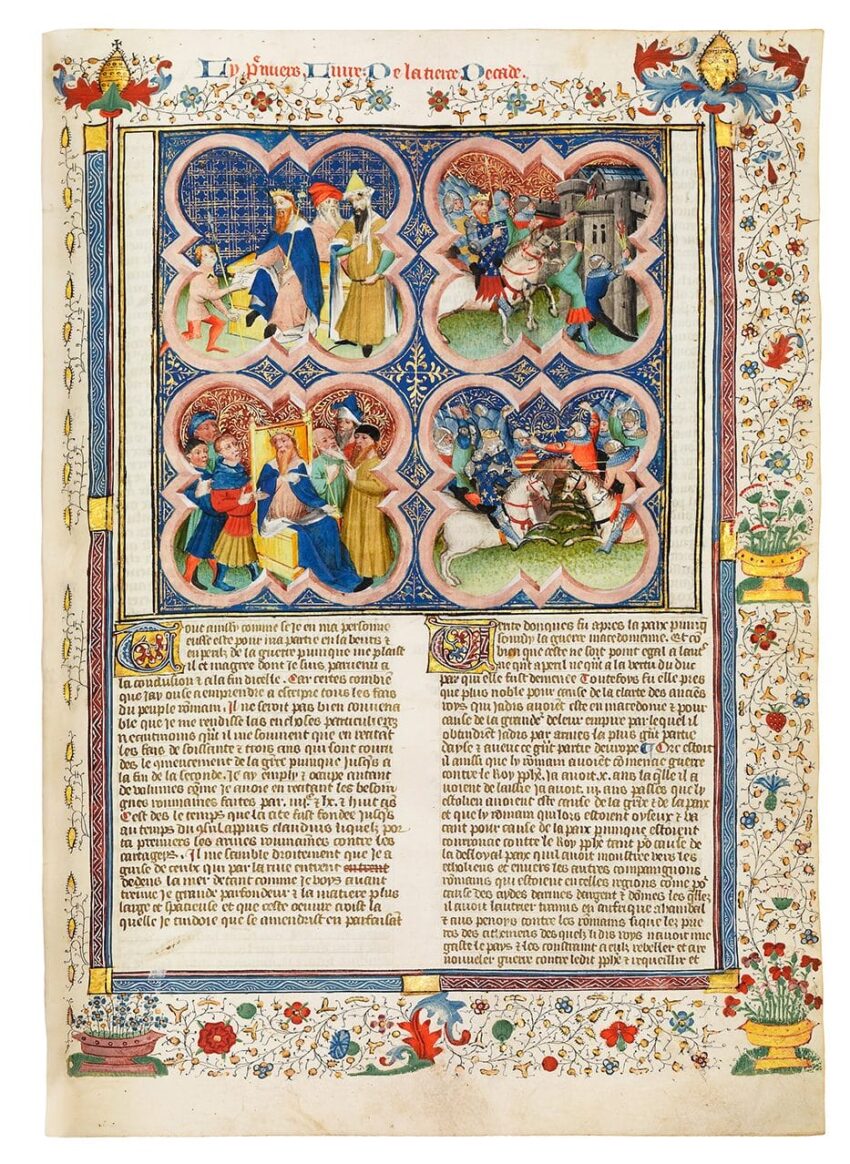 Ly p̃miers Liure De la tierce Decade.
Tout ainssy comme se Ie en ma personne
eusse este pour ma partie en la
en perilz de la guerre punique me plaist
il et magree dont Ie suis paruenu a
la conclusion & a la fin dicelle. Car certes combiẽ
que Iay ou se a emprendre a escripre tous les fais
du peuple rommain. Il ne seroit pas bien conuena
ble que Ie me rendisse las en choses particulieres
neantmoins qñt il me souuient que en recitãt
les fais de soissante & trois ans qui sont contẽ
des le cõmencement de la guerre punique Iusqs a
la fin de la seconde. Ie ay emply & ocupe autant
de volumes com̃e Ie auoie en recitant les besoin
gnes rommaines faites par. iiijc & lx. & huit ãs
Cest des le temps que la cite fust fondee Iusqs
au temps du appius claudius liquelz por
ta premiers les armes rommaines contre les
cartagens. Il me samble droitement que Ie a
guise de ceulx qui par la riue entrent entrent
dedens la mer de tant comme Ie voys auant
treuue Ie grande parfondeur & la matiere plus
large & spacieuse et que ceste oeuure croist la
quelle Ie cuidoie que se amendrist en parfaisãt
donques fu apres la paix puniq̃
la guerre macedonienne. Et cõ
bien que ceste ne soit point egal a lau
ne qñt a peril ne qñt a la vertu du duc
par qui elle fust demenee Toutefoys fu elle pres
que plus noble pour cause de la clarte des anciẽs
roys qui Iadis auoiẽt este en macedone & pour
cause de la grande de leur empire par lequel il
obtindrẽt Iadis par armes la plus gñt partie
dayse & auecq̃ ce gñt partie deurope Or estoit
il ainssi que ly romain auoiẽt cõmencie guerre
contre le Roy pphẽ Ia auoit. x. ans la q̃lle il a
uoient delaissie Ia auoit. iij. ans passes que ly
etholien auoient este cause de la gr̃e & de la paix
et que ly romain qui lors estoient oyseux & va
cant pour cause de la paix punique estoient
contre le Roy pphẽ tant po cause de
la desloyal paix quil auoit monstree vers les
etholiens et enuers les autres compaingnons
romains qui estoient en celles regions com̃e po
cause des aydes deniers dargent & dõmes les q̃lz
il auoit en aufrique a hanibal
& aus penoys contre les romains si que lez prie
res des atheniens des quelz li dis roys auoit
gaste le pays & les constraint a eulx rebeller et a re
nouueler guerre contre ledit pphẽ & requeillir et